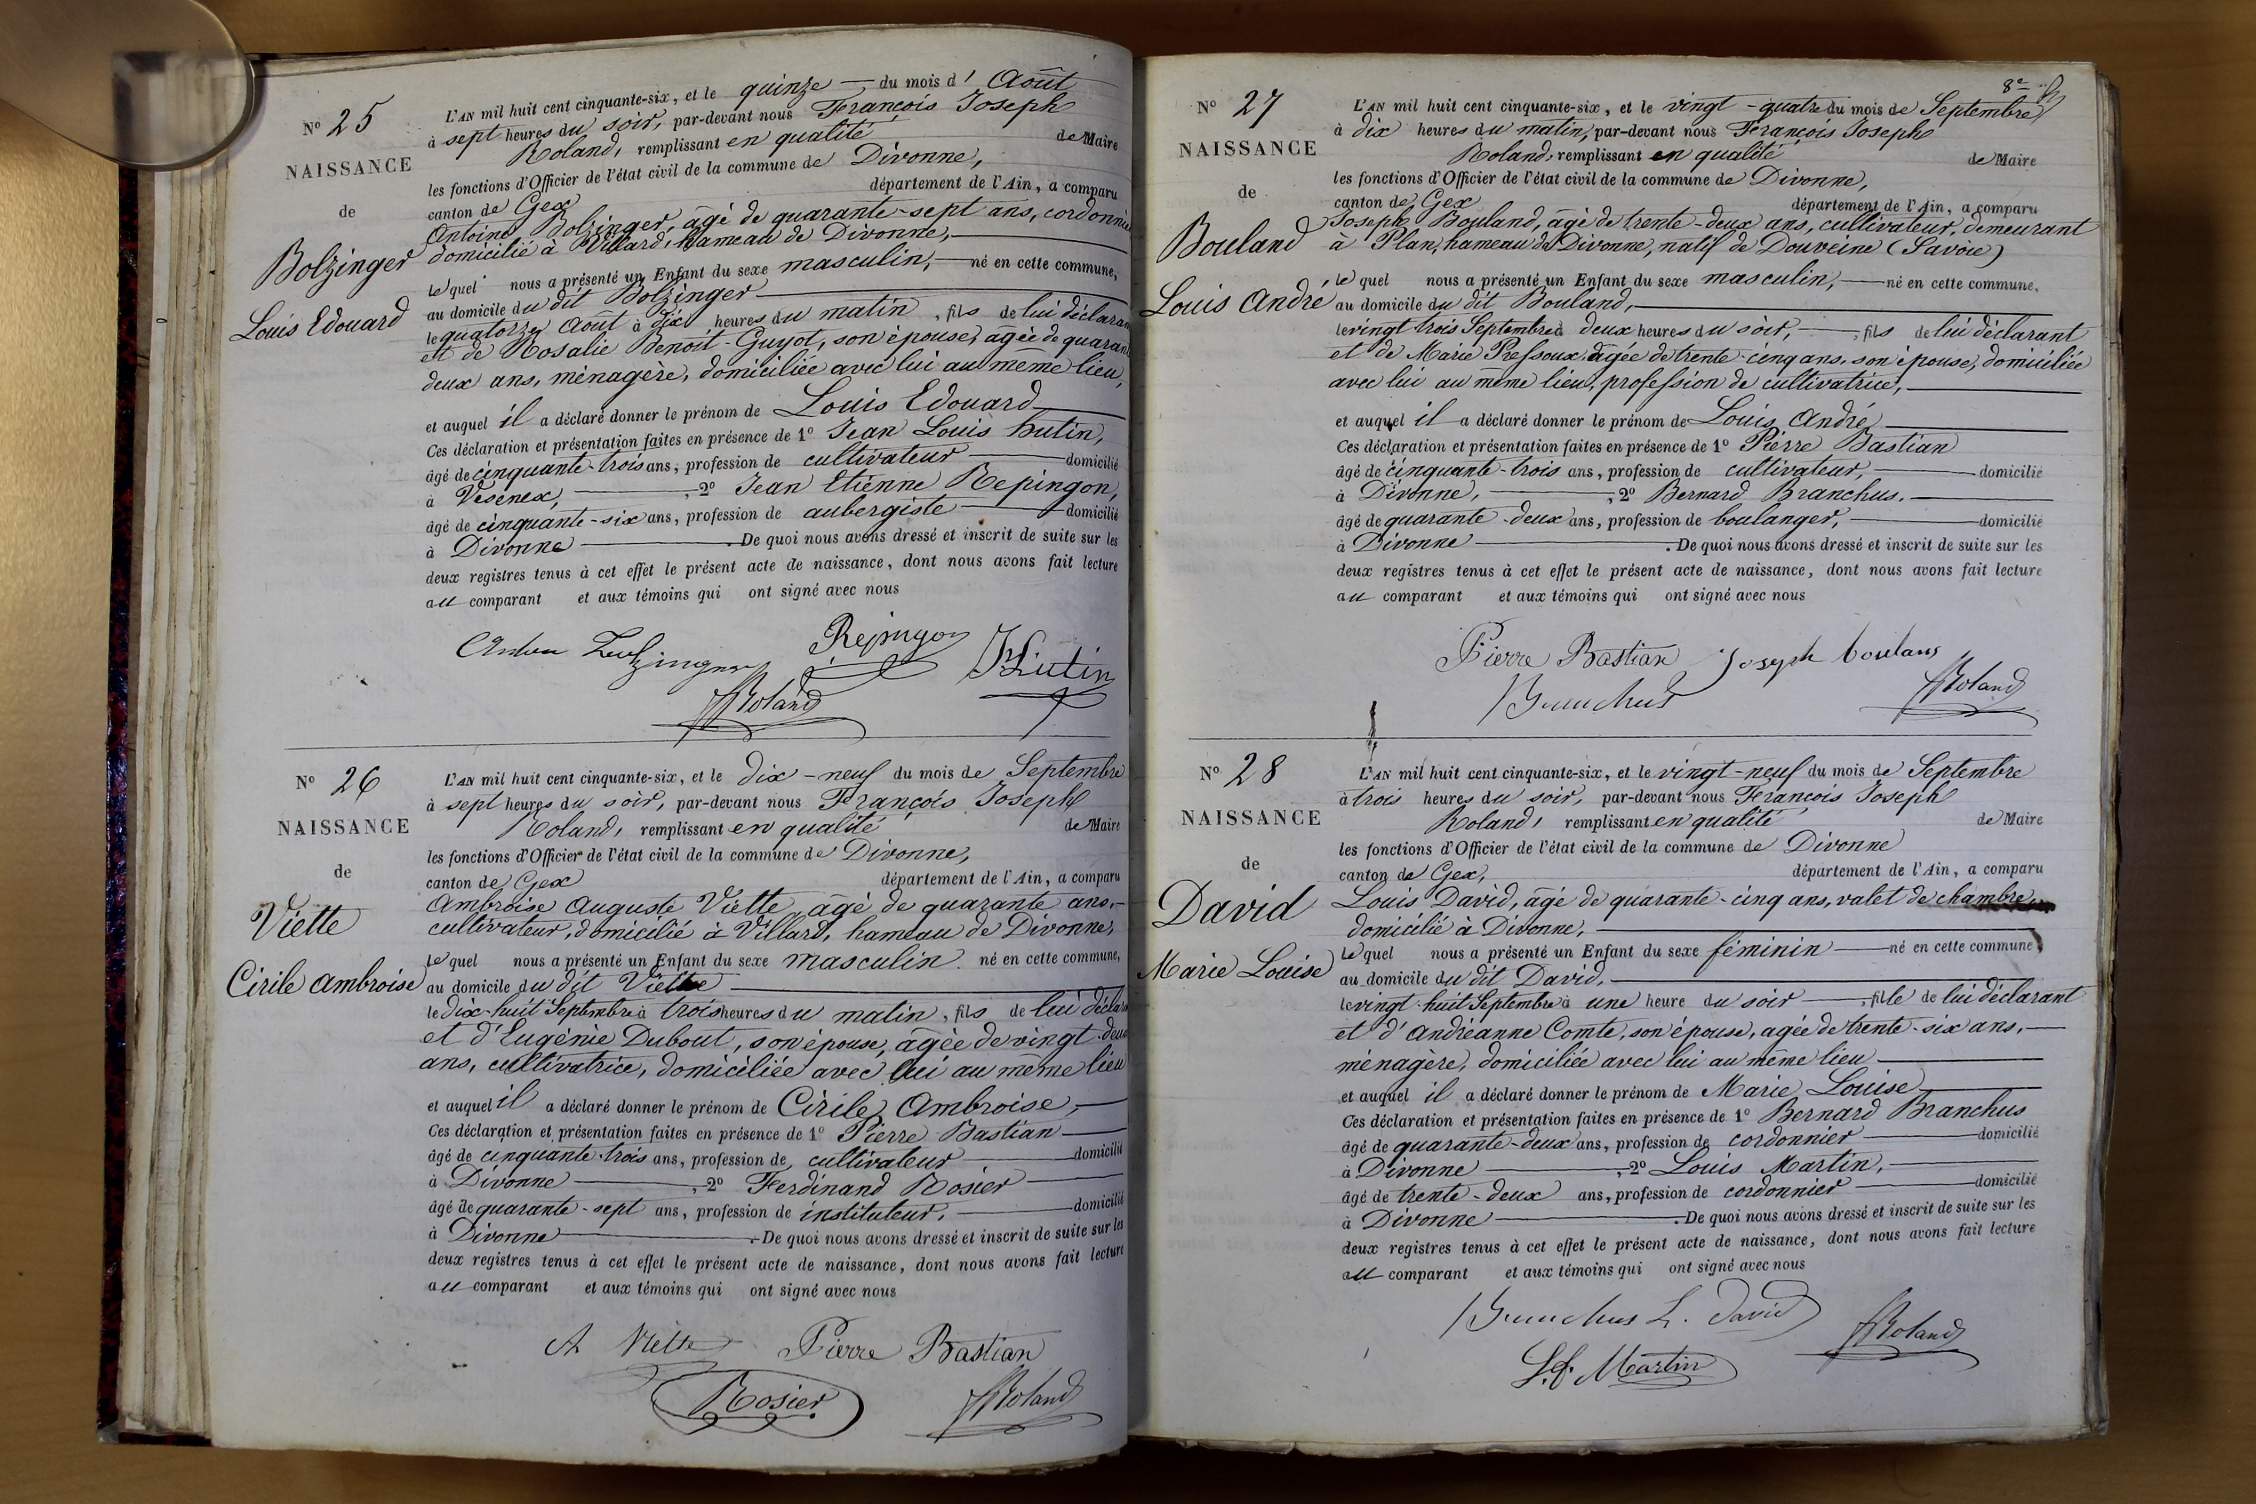 N° 25
NAISSANCE
de
Bolzinger
Louis Edouard
L'AN mil huit cent cinquante-six, et le quinze du mois d'Août
à sept heures du soir, par-devant nous François Joseph
Roland, remplissant en qualité de Maire
les fonctions d'Officier de l'état civil de la commune de Divonne,
canton de Gex département de l'Ain, a comparu
Antoine Bolzinger, âgé de quarante-sept ans, cordonnier
domicilié à Villard, hameau de Divonne,
lequel nous a présenté un Enfant du sexe masculin, né en cette commune,
au domicile du dit Bolzinger
le quatorze Août à dix heures du matin, fils de lui déclarant
et de Rosalie Benoit-Guyot, son épouse, agée de quarante
deux ans, ménagère, domiciliée avec lui au même lieu,
et auquel il a déclaré donner le prénom de Louis Edouard
Ces déclaration et présentation faites en présence de 1° Jean Louis hutin,
âgé de cinquante-trois ans, profession de cultivateur domicilié
à Vésenex, , 2° Jean Etienne Repingon,
âgé de cinquante-six ans, profession de aubergiste domicilié
à Divonne . De quoi nous avons dressé et inscrit de suite sur les
deux registres tenus à cet effet le présent acte de naissance, dont nous avons fait lecture
au comparant et aux témoins qui ont signé avec nous
Repingon
JLhutin
JfRoland
N° 26
NAISSANCE
de
Viette
Cirile Ambroise
L'AN mil huit cent cinquante-six, et le dix-neuf du mois de Septembre
à sept heures du soir, par-devant nous François Joseph
Roland, remplissant en qualité de Maire
les fonctions d'Officier de l'état civil de la commune de Divonne,
canton de Gex département de l'Ain, a comparu
Ambroise Auguste Viette, âgé de quarante ans,
cultivateur, domicilié à Villard, hameau de Divonne,
lequel nous a présenté un Enfant du sexe masculin. né en cette commune,
au domicile du dit Viette
le dix-huit Septembre à trois heures du matin, fils de lui déclarant
et d'Eugénie Dubout, son épouse, agée de vingt-deux
ans, cultivatrice, domiciliée avec lui au même lieu
et auquel il a déclaré donner le prénom de Cirile Ambroise,
Ces déclaration et présentation faites en présence de 1° Pierre Bastian
âgé de cinquante-trois ans, profession de cultivateur domicilié
à Divonne , 2° Ferdinand Rosier
âgé de quarante-sept ans, profession de instituteur, domicilié
à Divonne . De quoi nous avons dressé et inscrit de suite sur les
deux registres tenus à cet effet le présent acte de naissance, dont nous avons fait lecture
au comparant et aux témoins qui ont signé avec nous
A Viette Pierre Bastian
Rosier JfRoland
8e
N° 27
NAISSANCE
de
Bouland
Louis André
L'AN mil huit cent cinquante-six, et le vingt-quatre du mois de Septembre
à dix heures du matin, par-devant nous François Joseph
Roland, remplissant en qualité de Maire
les fonctions d'Officier de l'état civil de la commune de Divonne,
canton de Gex département de l'Ain, a comparu
Joseph Bouland, âgé de trente-deux ans, cultivateur, demeurant
à Plan, hameau de Divonne, natif de Douveine (Savoie)
lequel nous a présenté un Enfant du sexe masculin, né en cette commune,
au domicile du dit Bouland,
le vingt trois Septembre à deux heures du soir, , fils de lui déclarant
et de Marie Pressoux, agée de trente-cinq ans, son épouse, domiciliée
avec lui au même lieu, profession de cultivatrice,
et auquel il a déclaré donner le prénom de Louis André
Ces déclaration et présentation faites en présence de 1° Pierre Bastian
âgé de cinquante-trois ans, profession de cultivateur, domicilié
à Divonne, , 2° Bernard Branchus,
âgé de quarante-deux ans, profession de boulanger, domicilié
à Divonne . De quoi nous avons dressé et inscrit de suite sur les
deux registres tenus à cet effet le présent acte de naissance, dont nous avons fait lecture
au comparant et aux témoins qui ont signé avec nous
Pierre Bastian Joseph boulans
Branchus JfRoland
N° 28
NAISSANCE
de
David
Marie Louise
L'AN mil huit cent cinquante-six, et le vingt-neuf du mois de Septembre
à trois heures du soir, par-devant nous François Joseph
Roland, remplissant en qualité de Maire
les fonctions d'Officier de l'état civil de la commune de Divonne
canton de Gex, département de l'Ain, a comparu
Louis David, âgé de quarante-cinq ans, valet de chambre,
domicilié à Divonne,
lequel nous a présenté un Enfant du sexe féminin né en cette commune,
au domicile du dit David,
le vingt-huit Septembre à une heure du soir , fille de lui déclarant
et d'Andréanne Comte, son épouse, agée de trente-six ans,
ménagère, domiciliée avec lui au même lieu
et auquel il a déclaré donner le prénom de Marie Louise
Ces déclaration et présentation faites en présence de 1° Bernard Branchus
âgé de quarante-deux ans, profession de cordonnier domicilié
à Divonne , 2° Louis Martin,
âgé de trente-deux ans, profession de cordonnier domicilié
à Divonne . De quoi nous avons dressé et inscrit de suite sur les
deux registres tenus à cet effet le présent acte de naissance, dont nous avons fait lecture
au comparant et aux témoins qui ont signé avec nous
Branchus L. David JfRoland
L.f. Martin